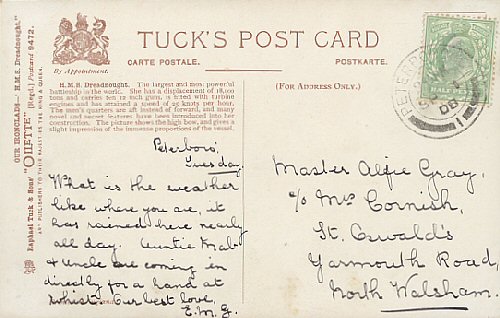 TUCK'S POST CARD
CARTE POSTALE.
POSTKARTE.
By Appointment.
(FOR ADDRESS ONLY.)
H.M.S. Dreadnought. The largest and most powerful
battleship in the world. She has a displacement of 18,000
tons and carries ten 12 inch guns, is fitted with turbine
engines and has attained a speed of 25 knots per hour.
The men's quarters are aft instead of forward, and many
novel and secret features have been introduced into her
construction. The picture shows the high bow, and gives a
slight impression of the immense proportions of the vessel.
OUR IRONCLADS— H.M.S. Dreadnought."
Raphael Tuck & Sons' "OILETTE" [Regd.] Postcard 9472.
ART PUBLISHERS TO THEIR MAJESTIES THE KING & QUEEN.
HALFPENNY
PETERBORO
08
1
Peterboro,
Tuesday.
What is the weather
like where you are, it
has rained here nearly
all day. Auntie Mab
& uncle are coming in
directly for a hand at
whist. Our best love,
E.M.G.
Master Alfie Gray,
c/o Mrs Cornish,
St. Oswald's
Yarmouth Road,
North Walsham.